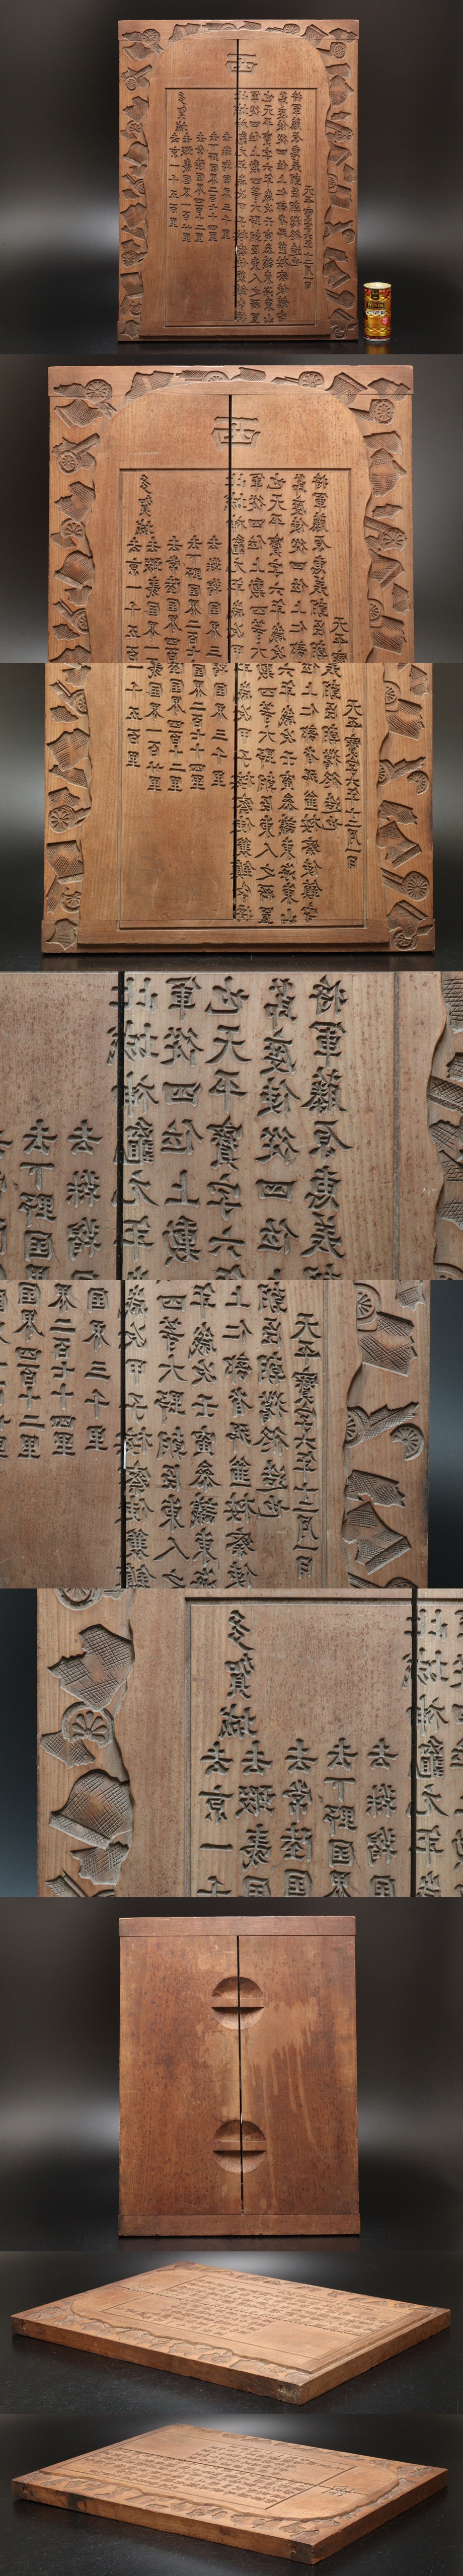 西
多賀城
去京一千五百里
去蝦夷国界一百廿里
去常陸国界四百十二里
去下野国界二百七十四里
去靺鞨国界三千里
此城神龜元年歳次甲子按察使兼鎮守将
軍従四位上勲四等大野朝臣東人之所置
也天平寶字六年歳次壬寅參議東海東山
節度使従四位上仁部省卿兼按察使鎮守
将軍藤原恵美朝臣朝獦修造也
天平寶字六年十二月一日